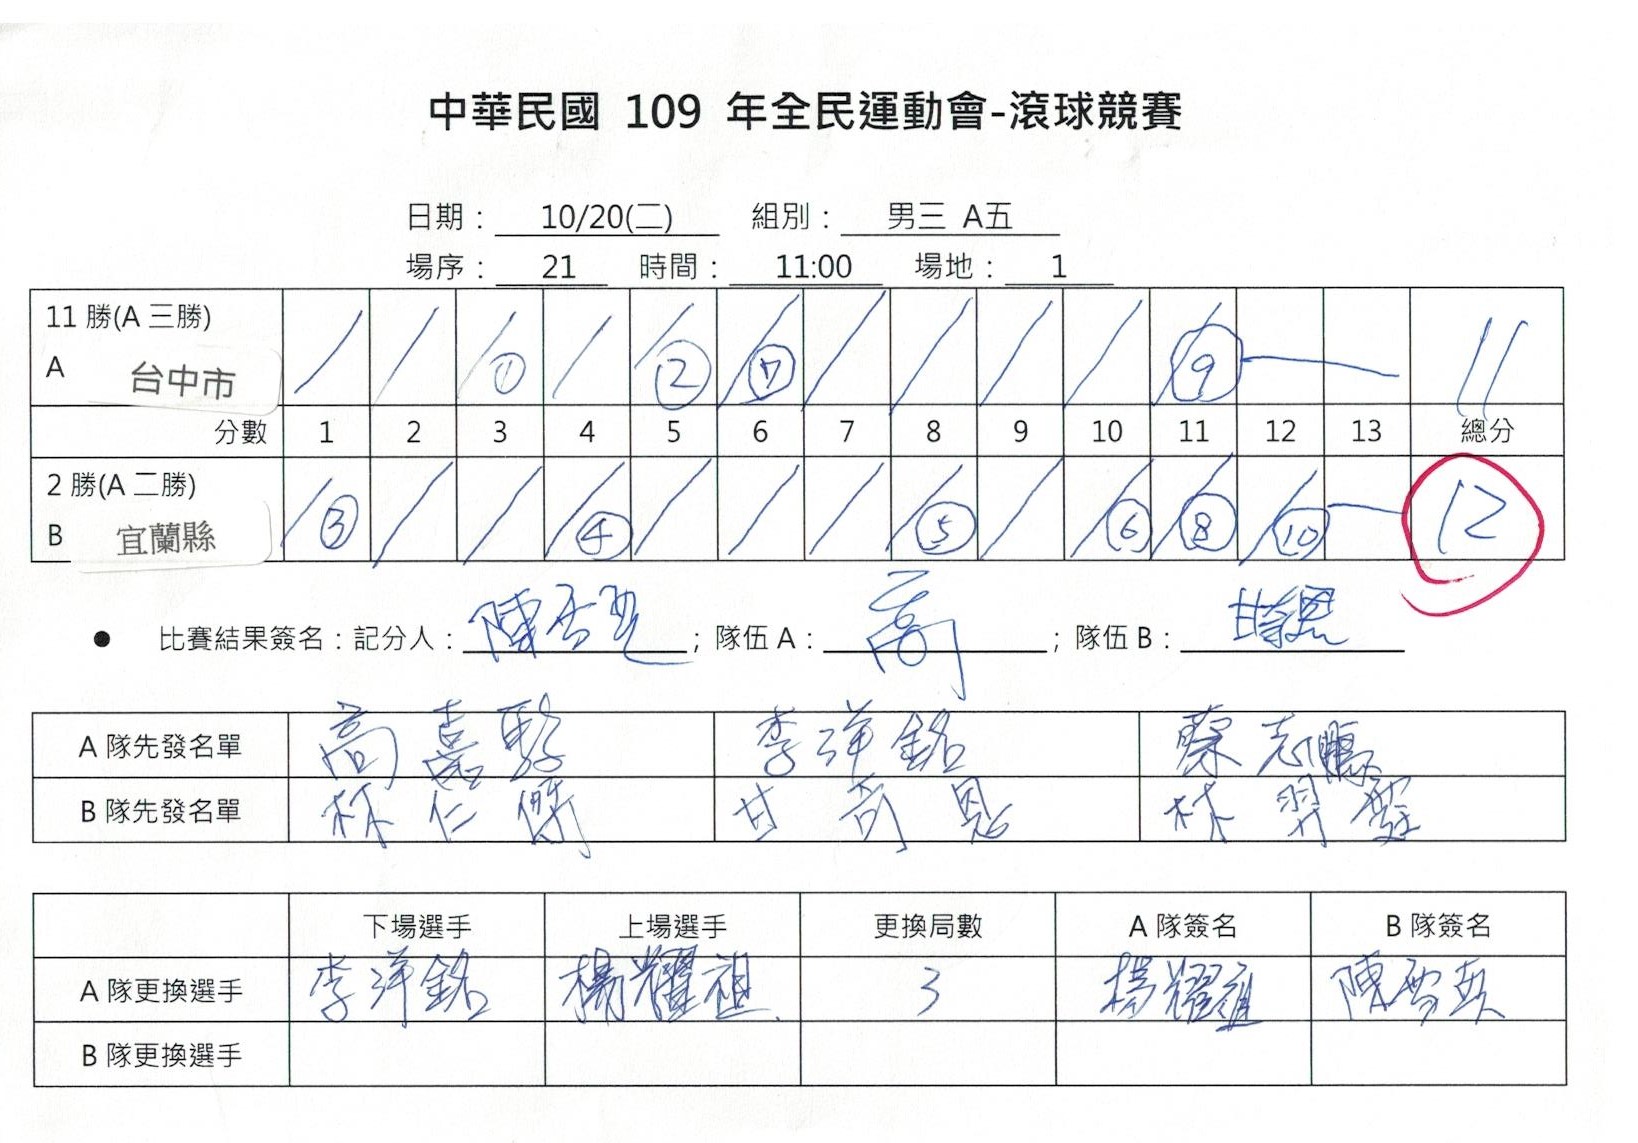 中華民國 109 年全民運動會-滾球競賽
日期： 10/20(二) 組別： 男三 A五
場序： 21 時間： 11:00 場地： 1
11 勝(A 三勝)
A 台中市 / / / ① / / ② / ⑦ / / / / / ⑨ 11
分數 1 2 3 4 5 6 7 8 9 10 11 12 13 總分
2 勝(A 二勝)
B 宜蘭縣 / ③ / / / ④ / / / / ⑤ / / ⑥ / ⑧ / ⑩ 12
● 比賽結果簽名：記分人： 陳 ；隊伍 A： 高 ；隊伍 B： 甘
A 隊先發名單 高嘉 李洋銘 蔡志鵬
B 隊先發名單 林仁傑 甘奇恩 林羿
下場選手 上場選手 更換局數 A 隊簽名 B 隊簽名
A 隊更換選手 李洋銘 楊耀祖 3 楊耀 陳
B 隊更換選手